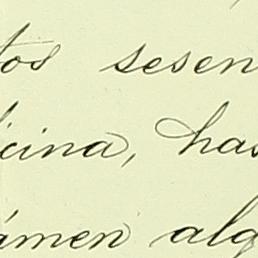 tos sesen
icina, has
ámen alg